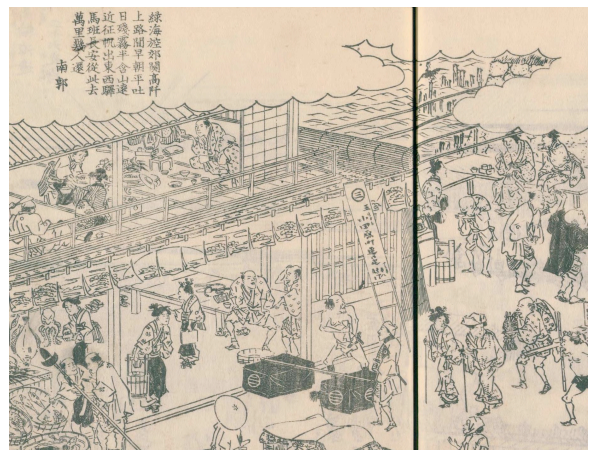 縁海控郊關高阡
上路間早朝平吐
日殘霧半含山遠
近征帆出東西驛
馬班長安從此去
萬里幾人還
南郭